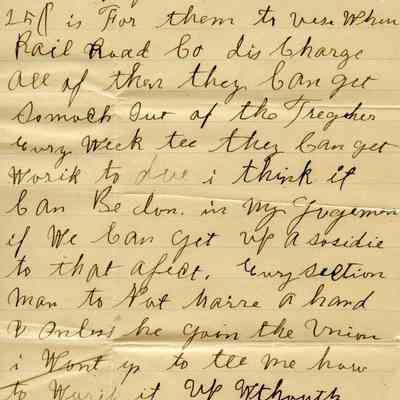 is For them to vese When
Rail Road Co dis Charge
all of then they Can get
Somoch out of the Tregher
Evry Week tee they Can get
Worik to due i think if
Can Be don. in My Jugemen
if We Can get up a sosidie
to that afect. Evry section
man to Not Harre a hand
unless he goin the Union
i Wont yo to tee me how
to Workk it up Wthouth